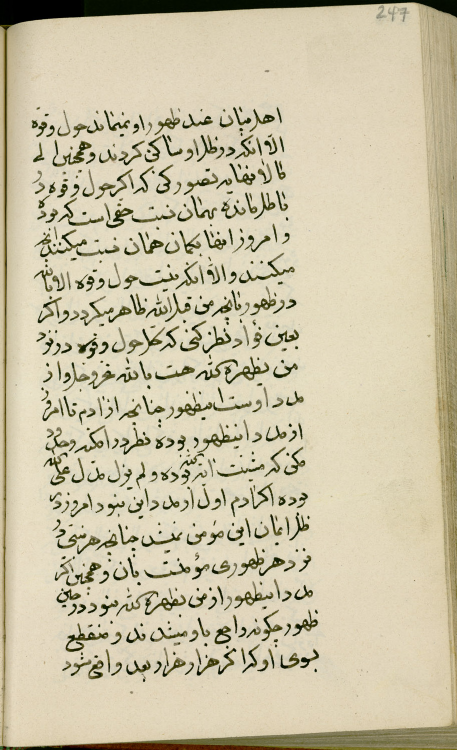 247
اهل بیان عند ظهور او نمیماند حول و قوه
الا آنکه در ظل او ساکن کردند و همچنین الی
ما لا نهایه تصور کن که اکر حول و قوه در
ما ظل مانده همان نسبت حقی است که بوده
و امروز انها بکمان همان نسبت میکنند آنچه
میکنند والا آنکه نیست حول و قوه الا بالله
در ظهور ثانیه من قبل الله ظاهر میکردد و اکر
بعین فؤاد نظر کنی که کل حول و قوه در نزد
من یظهره الله هست بالله عز و جل و از
مبدء اوست این ظهور چنانچه از ادم تا امروز
از مبدء این ظهور بوده نظر در امکنه و حدود
مکن که مشیت الله بوده و لم یزل یدل علی الله
بوده اکر ادم اول از مبدء این نبود امروز در
ظل ایمان این مؤمن نمیشد چنانچه هر شیئ در
نزد هر ظهوری مؤمنست بان و همچنین اکر
مبدء این ظهور از من یظهره الله نبود در حین
ظهور چکونه راجع باو میشدند و منقطع
بسوی او که اکر هزار هزار بعد واقع شود